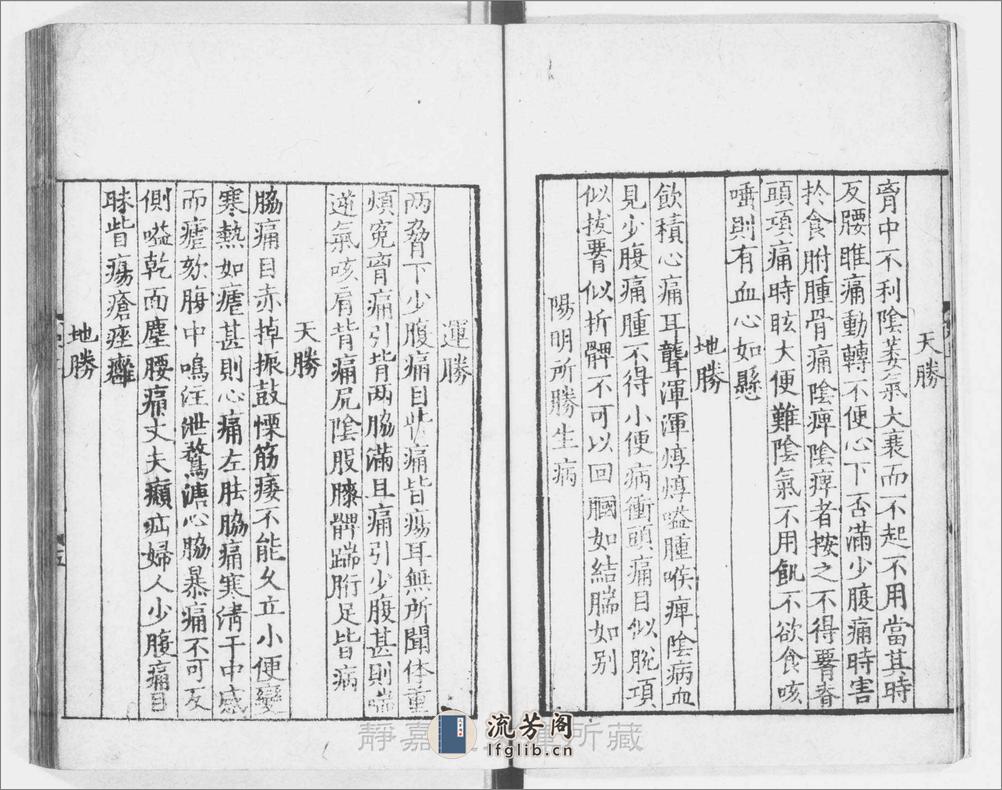 天勝
胷中不利陰萎氣大衰而不起不用當其時
反腰脽痛動轉不便心下否滿少腹痛時害
扵食胕腫骨痛陰痺陰痺者按之不得䝅脊
頭項痛時眩大便難陰氣不用飢不欲食咳
唾則有血心如懸
地勝
飲積心痛耳聾渾渾焞焞嗌腫喉痺陰病血
見少腹痛腫不得小便病衝頭痛目似脫項
似拔䝅似折髀不可以回膕如結腨如别
陽明所勝生病
運勝
两脅下少腹痛目赤痛眥瘍耳無所聞体重
煩冤胷痛引背两脇滿且痛引少腹甚則喘
逆氣咳肩背痛尻陰股膝髀踹胻足皆病
天勝
脇痛目赤掉振鼓慄筋痿不能久立小便變
寒熱如瘧甚則心痛左胠脇痛寒淸干中感
而瘧欬腹中鳴注泄鶩溏心脇暴痛不可反
側嗌乾面塵腰痛丈夫癩疝婦人少腹痛目
眛眥瘍瘡痤癰
地勝
五
静嘉堂文庫所藏
流芳阁
lfglib.cn